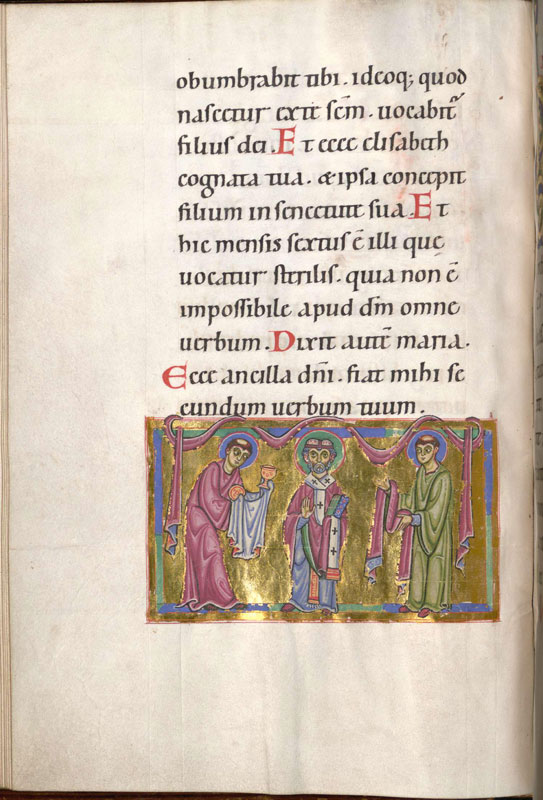 obumbrabit tibi. ideoq; quod
nascetur exte scm̄. uocabit᷑
filius dei. Et ecce elisabeth
cognata tua. & ipsa concepit
filium in senectute sua. Et
hic mensis sextus ē illi que
uocatur sterilis. quia non ē
impossibile apud dm̄ omne
uerbum. Dixit autē maria.
Ecce ancilla dn̄i. fiat mihi se
cundum uerbum tuum.